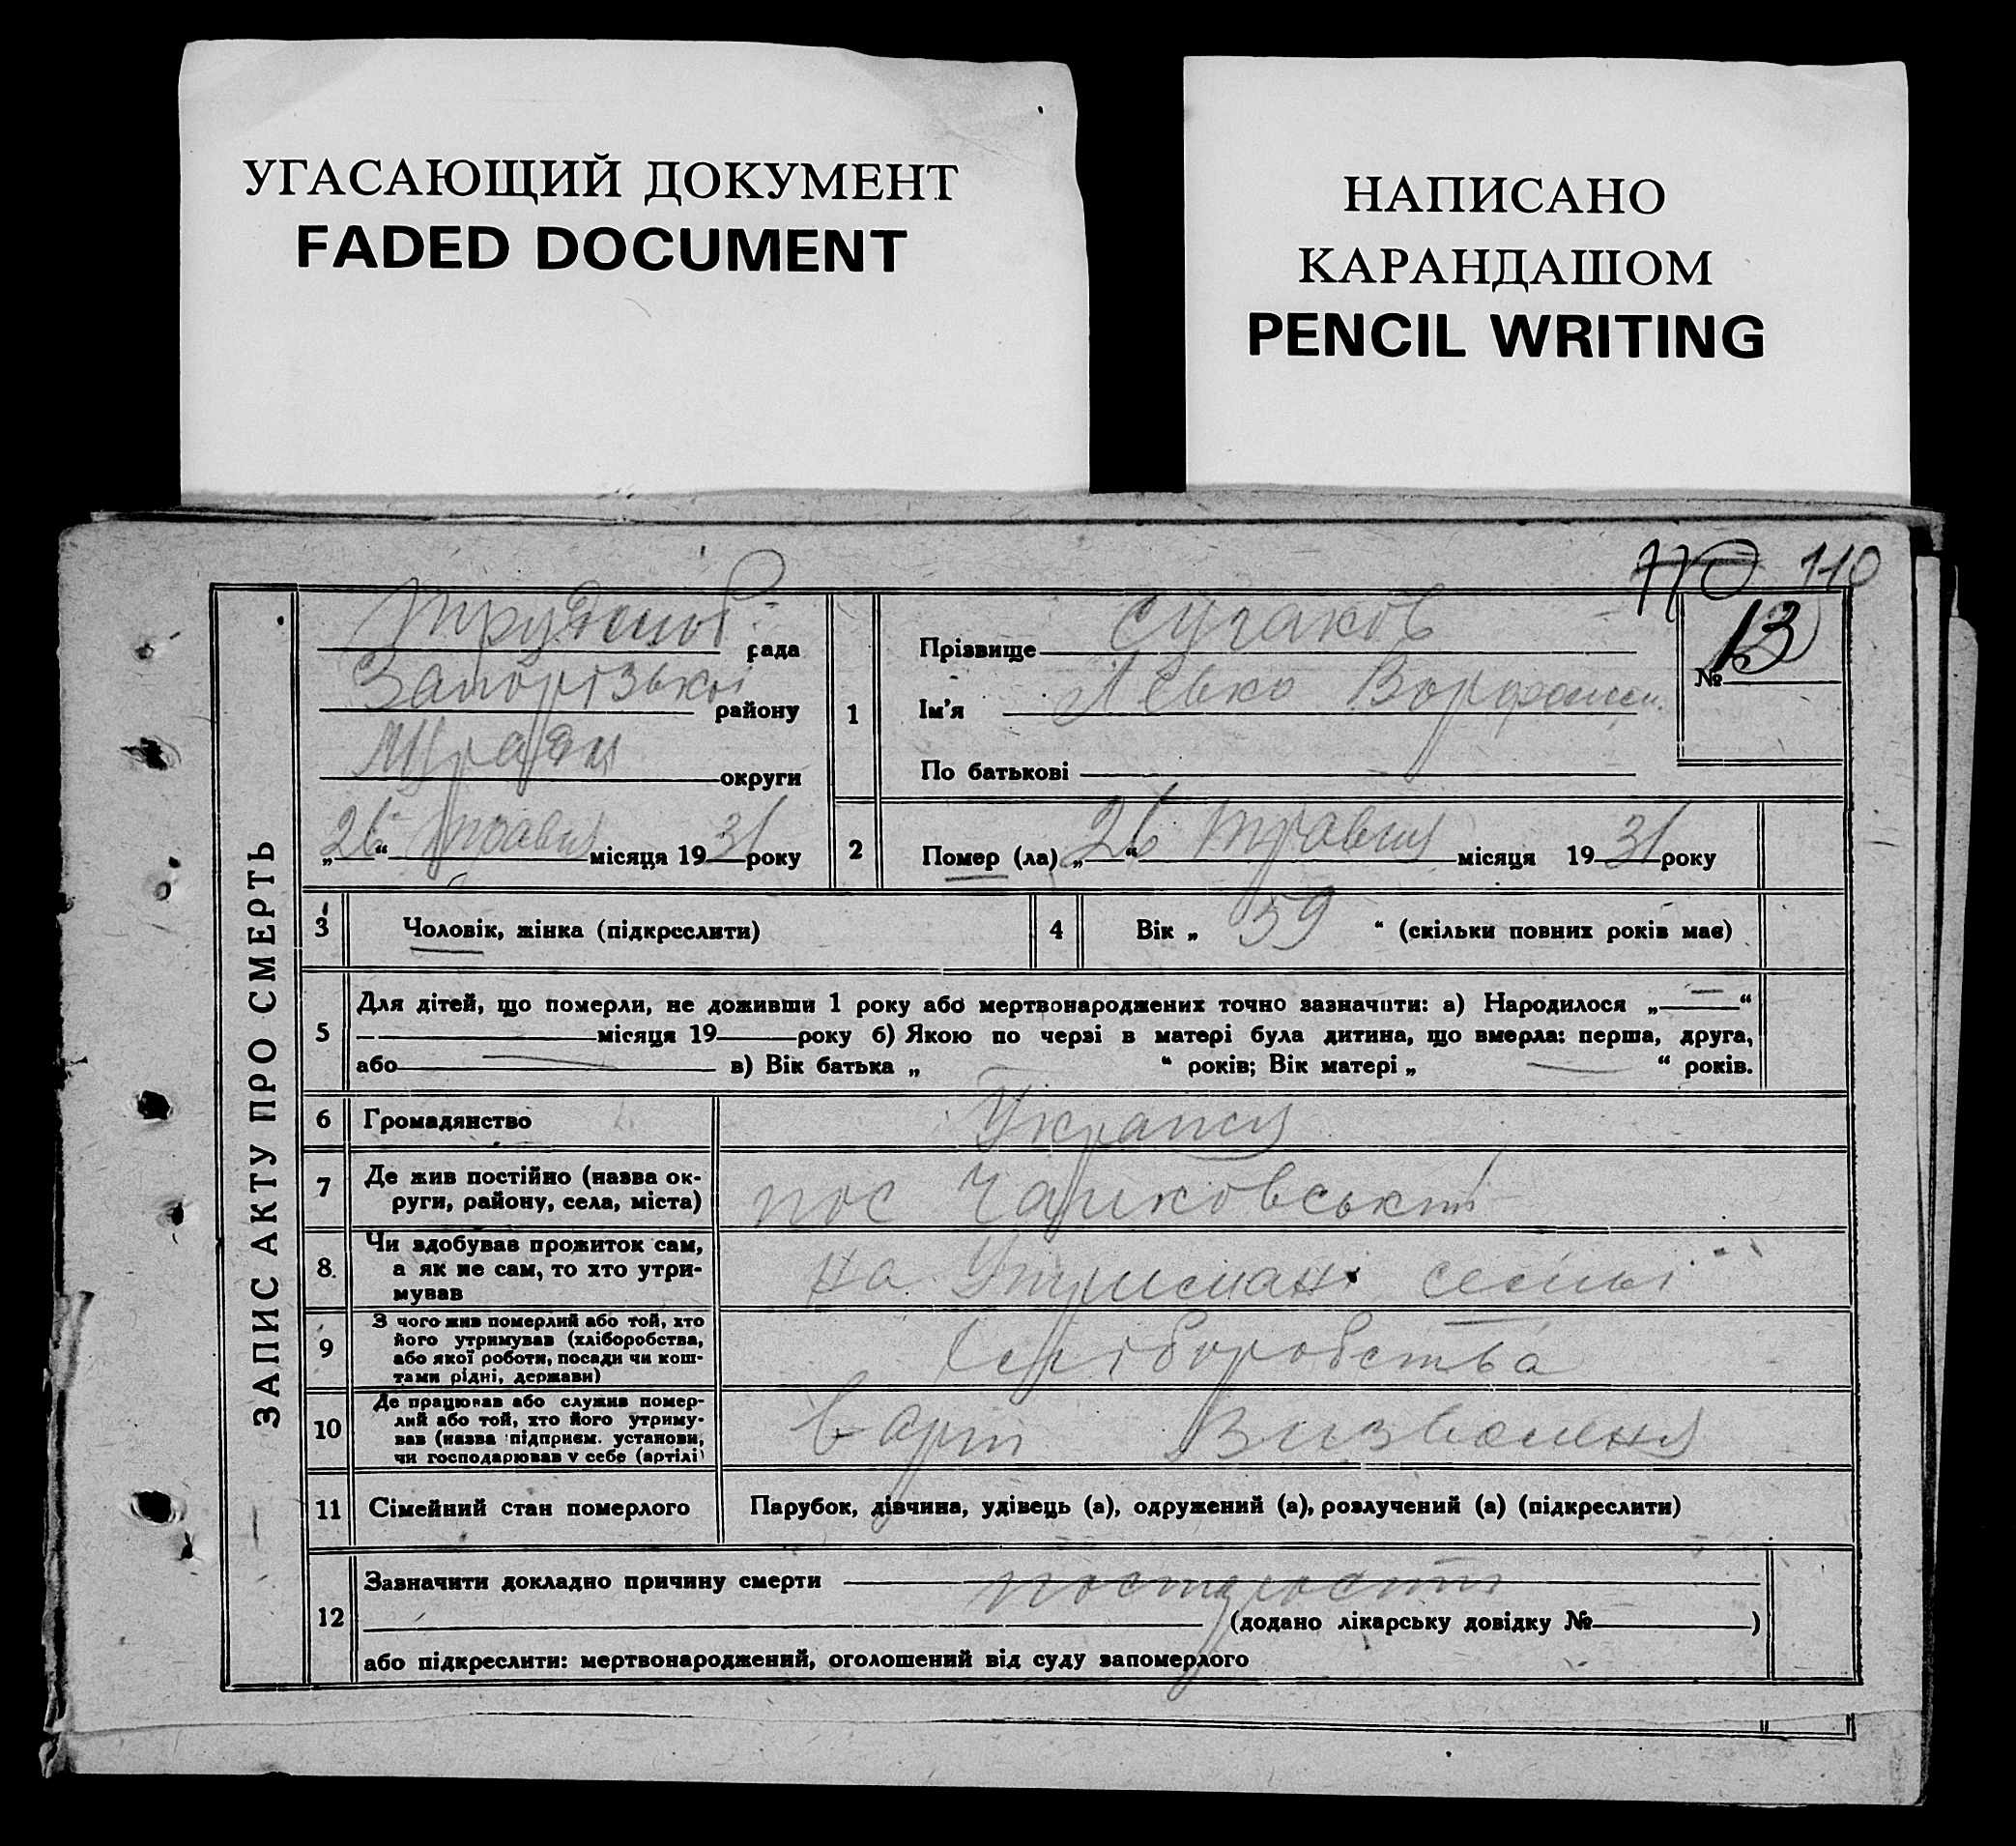 УГАСАЮЩИЙ ДОКУМЕНТ
FADED DOCUMENT
НАПИСАНО
КАРАНДАШОМ
PENCIL WRITING
110 110
ЗАПИС АКТУ ПРО СМЕРТЬ
рада
Запорізької району
округи
„26“ травня місяця 1931 року
1
Прізвище Сугаков
Ім'я Лєвко
По батькові
№ 13
2
Помер (ла) „26“ травня місяця 1931 року
3
Чоловік, жінка (підкреслити)
4
Вік „ 59 “ (скільки повних років має)
5
Для дітей, що померли, не доживши 1 року або мертвонароджених точно зазначити: а) Народилося „ — “
— місяця 19 року б) Якою по черзі в матері була дитина, що вмерла: перша, друга,
або — в) Вік батька „ “ років; Вік матері „ — “ років.
6
Громадянство
7
Де жив постійно (назва ок-
руги, району, села, міста)
пос
8.
Чи здобував прожиток сам,
а як не сам, то хто утри-
мував
на Утримані семьі
9
З чого жив померлий або той, хто
його утримував (хліборобства,
або якої роботи, посади чи кош-
тами рідні, держави)
Хліборобства
10
Де працював або служив помер-
лий або той, хто його утриму-
вав (назва підприєм. установи,
чи господарював у себе (артілі)
в арт Визволеня
11
Сімейний стан померлого
Парубок, дівчина, удівець (а), одружений (а), розлучений (а) (підкреслити)
12
Зазначити докладно причину смерти по старості
(додано лікарську довідку № )
або підкреслити: мертвонароджений, оголошений від суду запомерлого